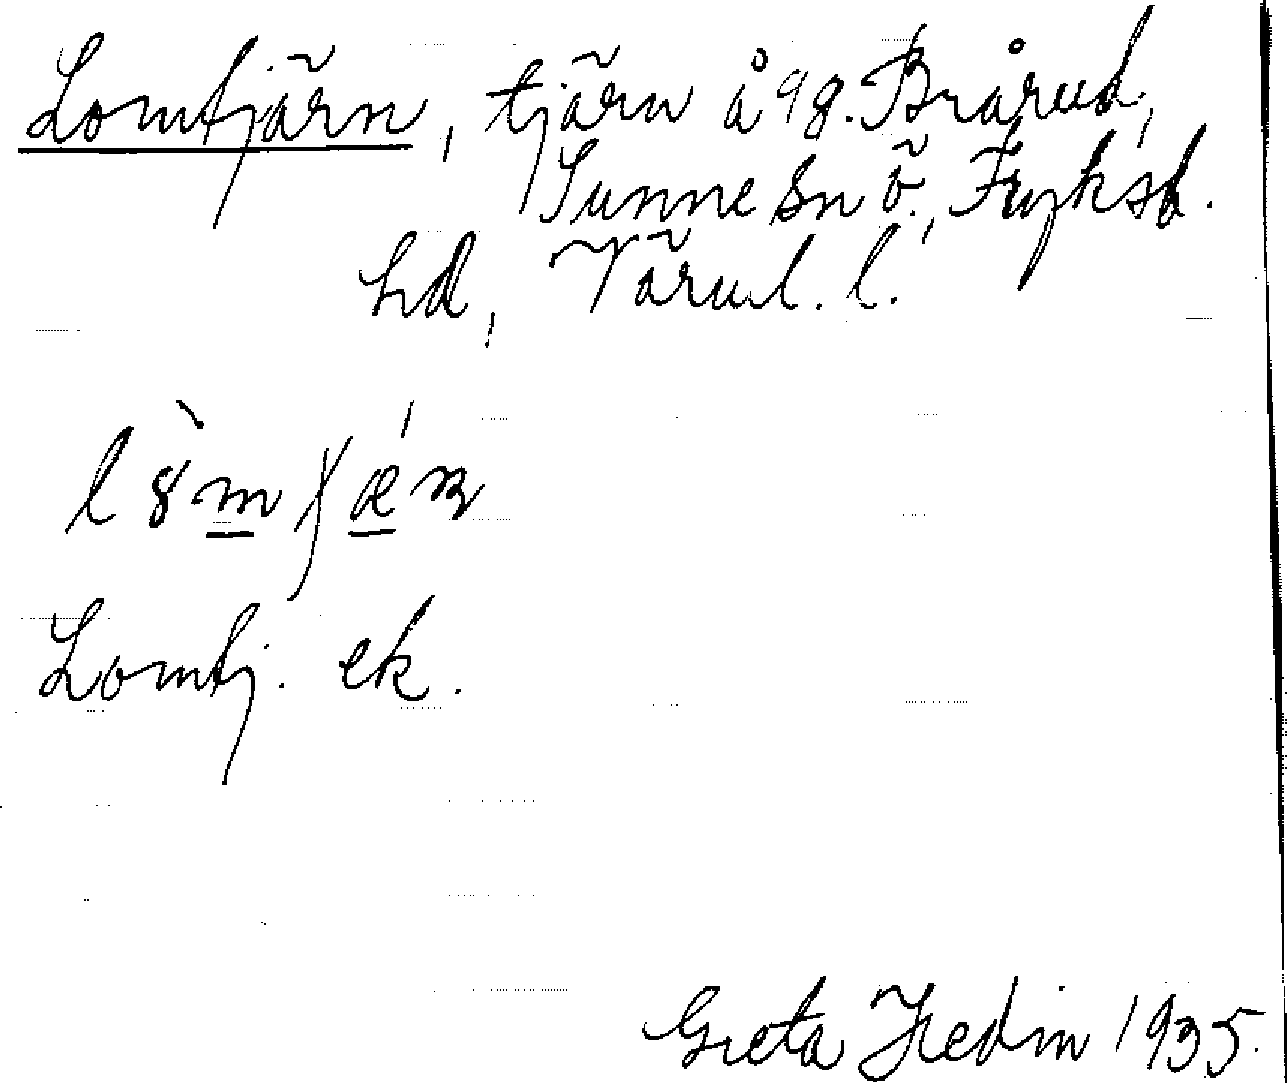 Lomtjärn, tjärn å äg. Brårud,
Sunne sn ö., Fryksd.
hd, Värml. l.
Lomtj. ek.
Greta Hedin 1935.